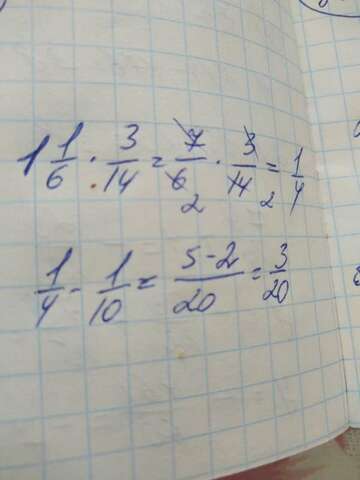 1 1/6 · 3/14 = 7/6 2 · 3/14 2 = 1/4
1/4 - 1/10 = 5-2/20 = 3/20